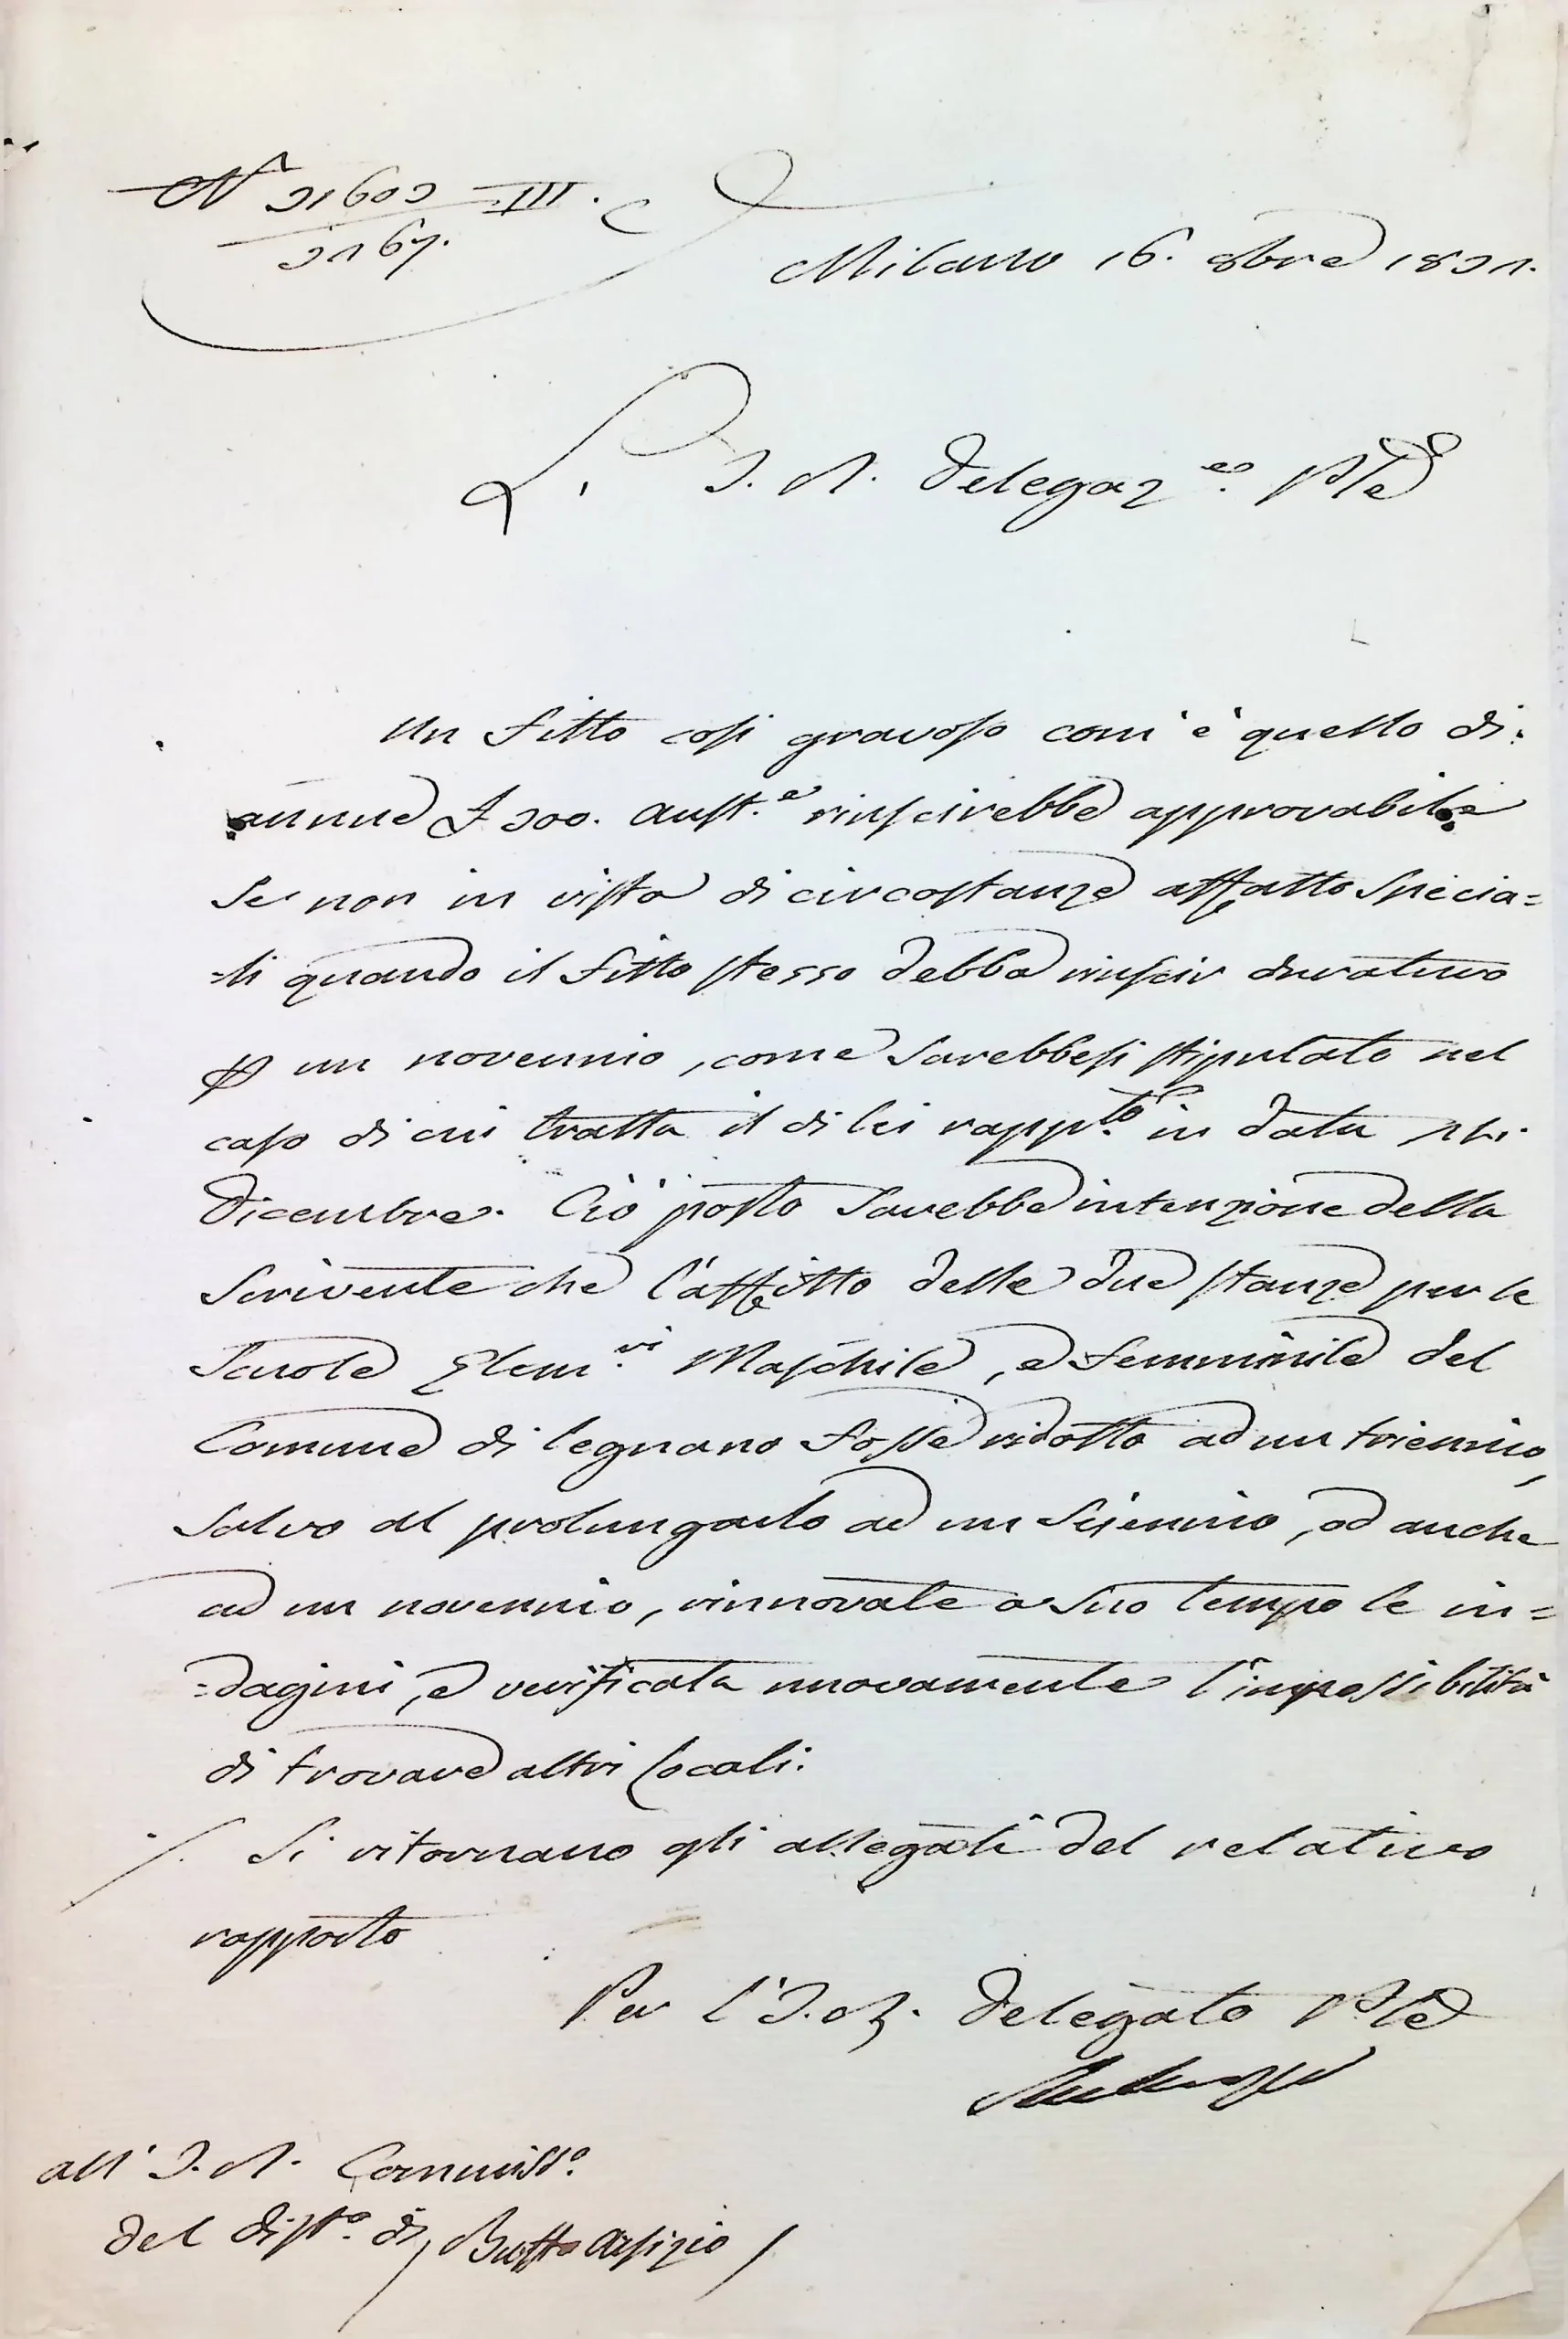 Milano 16. 8bre
L' I. R. Delegaz.e Ple
Un fitto così gravoso com' è quello di
annue £ 300. aust.e riuscirebbe approvabile
se non in vista di circostanze affatto specia=
=li quando il fitto stesso debba riuscir durativo
un novennio, come sarebbesi stipulato nel
caso di cui tratta il di lei rapp.to in data
Dicembre. Ciò posto sarebbe intenzione della
Scrivente che l'affitto delle due stanze per le
Scuole Elem.ri Maschile, e femminile del
Comune di Legnano fosse ridotto ad un triennio,
salvo al prolungarlo ad un seiennio, od anche
ad un novennio, rinnovate a suo tempo le in=
=dagini, e verificata nuovamente l'impossibilità
di trovare altri locali.
/. Si ritornano gli allegati del relativo
rapporto
Per l'I. R. Delegato Ple
all' I. R. Commiss.o
del Dist.o di Busto Arsizio /